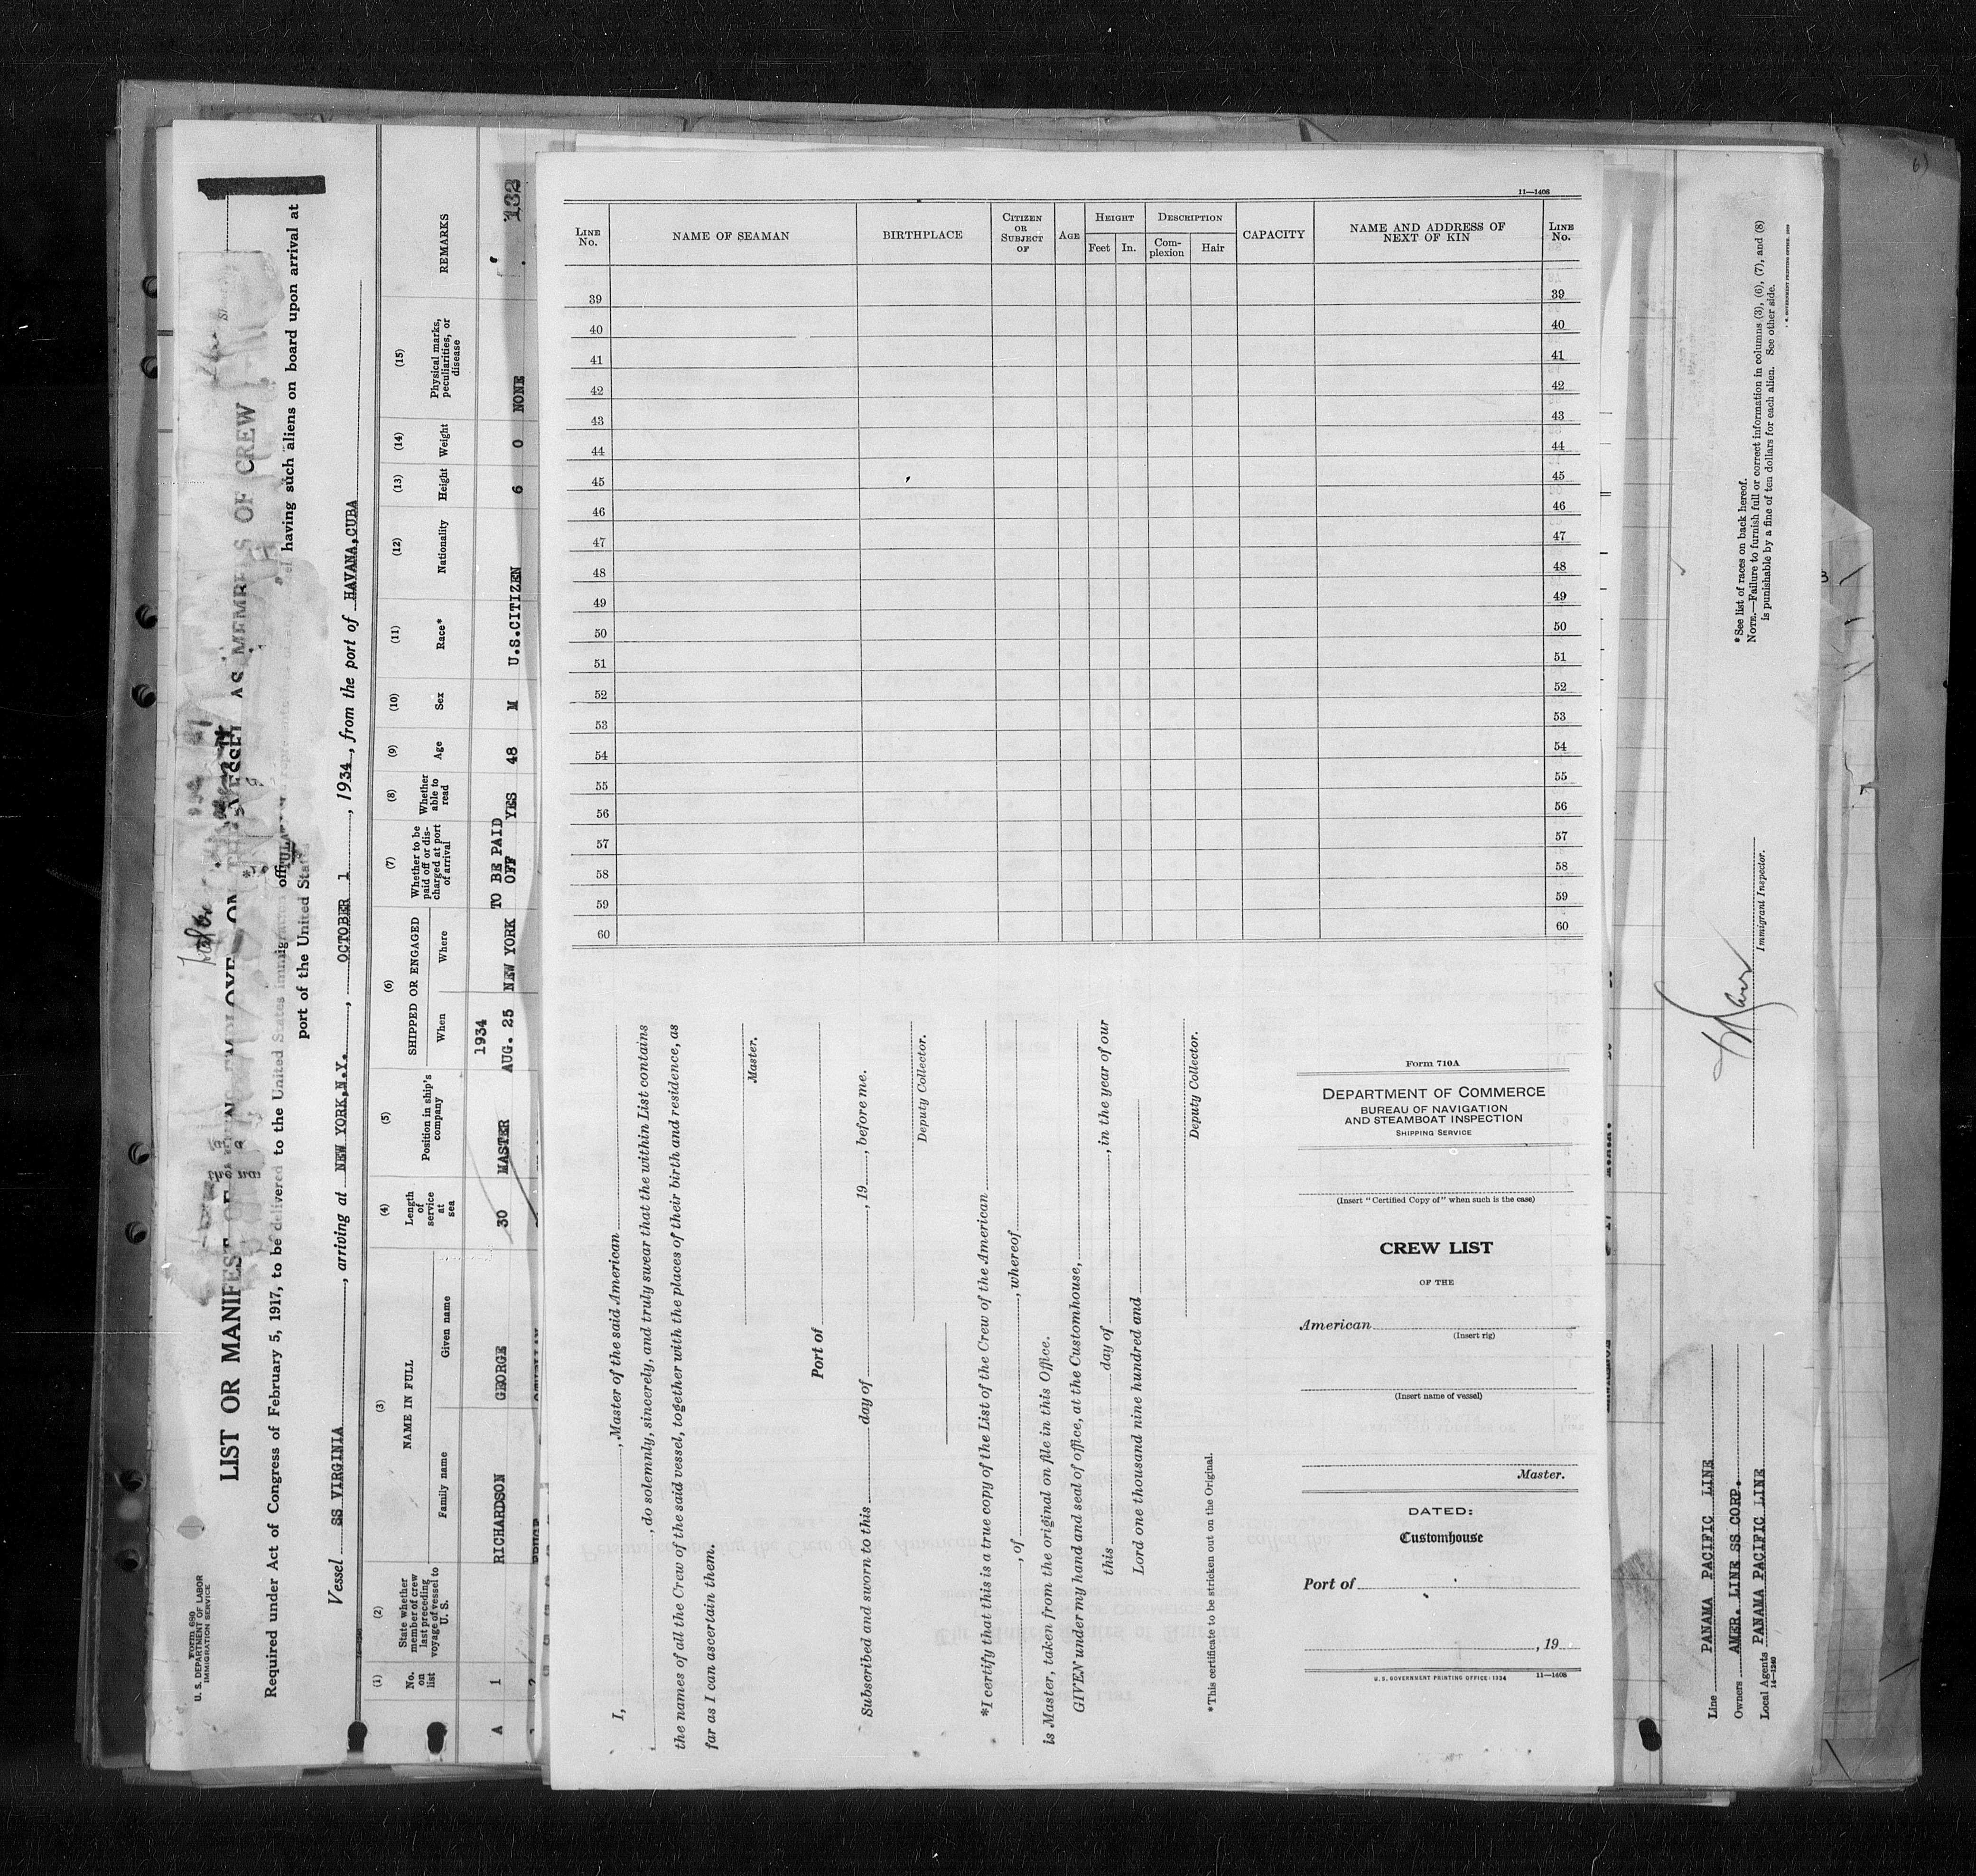 Form 680
U. S. DEPARTMENT OF LABOR
IMMIGRATION SERVICE
LIST OR MANIFEST OF AS MEMBERS OF CREW
Required under Act of Congress of February 5, 1917, to be delivered to the United States immigration having such aliens on board upon arrival at
port of the United States
Vessel SS VIRGINIA, arriving at NEW YORK,N.Y., OCTOBER 1, 1934, from the port of HAVANA,CUBA
(1) (2) (3) (4) (5) (6) (7) (8) (9) (10) (11) (12) (13) (14) (15)
No. on list
State whether member of crew last preceding voyage of vessel to U. S.
NAME IN FULL
Family name
Given name
Length of service at sea
Position in ship's company
SHIPPED OR ENGAGED
When
Where
Whether to be paid off or discharged at port of arrival
Whether able to read
Age
Sex
Race*
Nationality
Height
Weight
Physical marks, peculiarities, or disease
REMARKS
1934 TO BE PAID
A 1 RICHARDSON GEORGE 30 MASTER AUG. 25 NEW YORK OFF YES 48 M U.S.CITIZEN 6 0 NONE
132
11—1408
LINE No.
NAME OF SEAMAN
BIRTHPLACE
CITIZEN OR SUBJECT OF
AGE
HEIGHT
Feet
In.
DESCRIPTION
Com-plexion
Hair
CAPACITY
NAME AND ADDRESS OF NEXT OF KIN
LINE No.
39 39
40 40
41 41
42 42
43 43
44 44
45 45
46 46
47 47
48 48
49 49
50 50
51 51
52 52
53 53
54 54
55 55
56 56
57 57
58 58
59 59
60 60
I, , Master of the said American
, do solemnly, sincerely, and truly swear that the within List contains
the names of all the Crew of the said vessel, together with the places of their birth and residence, as
far as I can ascertain them.
Master.
Port of
Subscribed and sworn to this day of , 19 , before me.
Deputy Collector.
*I certify that this is a true copy of the List of the Crew of the American
, of , whereof
is Master, taken from the original on file in this Office.
GIVEN under my hand and seal of office, at the Customhouse,
this day of , in the year of our
Lord one thousand nine hundred and
Deputy Collector.
*This certificate to be stricken out on the Original.
Form 710A
DEPARTMENT OF COMMERCE
BUREAU OF NAVIGATION
AND STEAMBOAT INSPECTION
SHIPPING SERVICE
(Insert "Certified Copy of" when such is the case)
CREW LIST
OF THE
American
(Insert rig)
(Insert name of vessel)
Master.
DATED:
Customhouse
Port of
, 19
U. S. GOVERNMENT PRINTING OFFICE: 1934 11—1408
Line PANAMA PACIFIC LINE
Owners AMER. LINE SS CORP.
Local Agents PANAMA PACIFIC LINE
14—1240
Immigrant Inspector.
*See list of races on back hereof.
NOTE.—Failure to furnish full or correct information in columns (3), (6), (7), and (8)
is punishable by a fine of ten dollars for each alien. See other side.